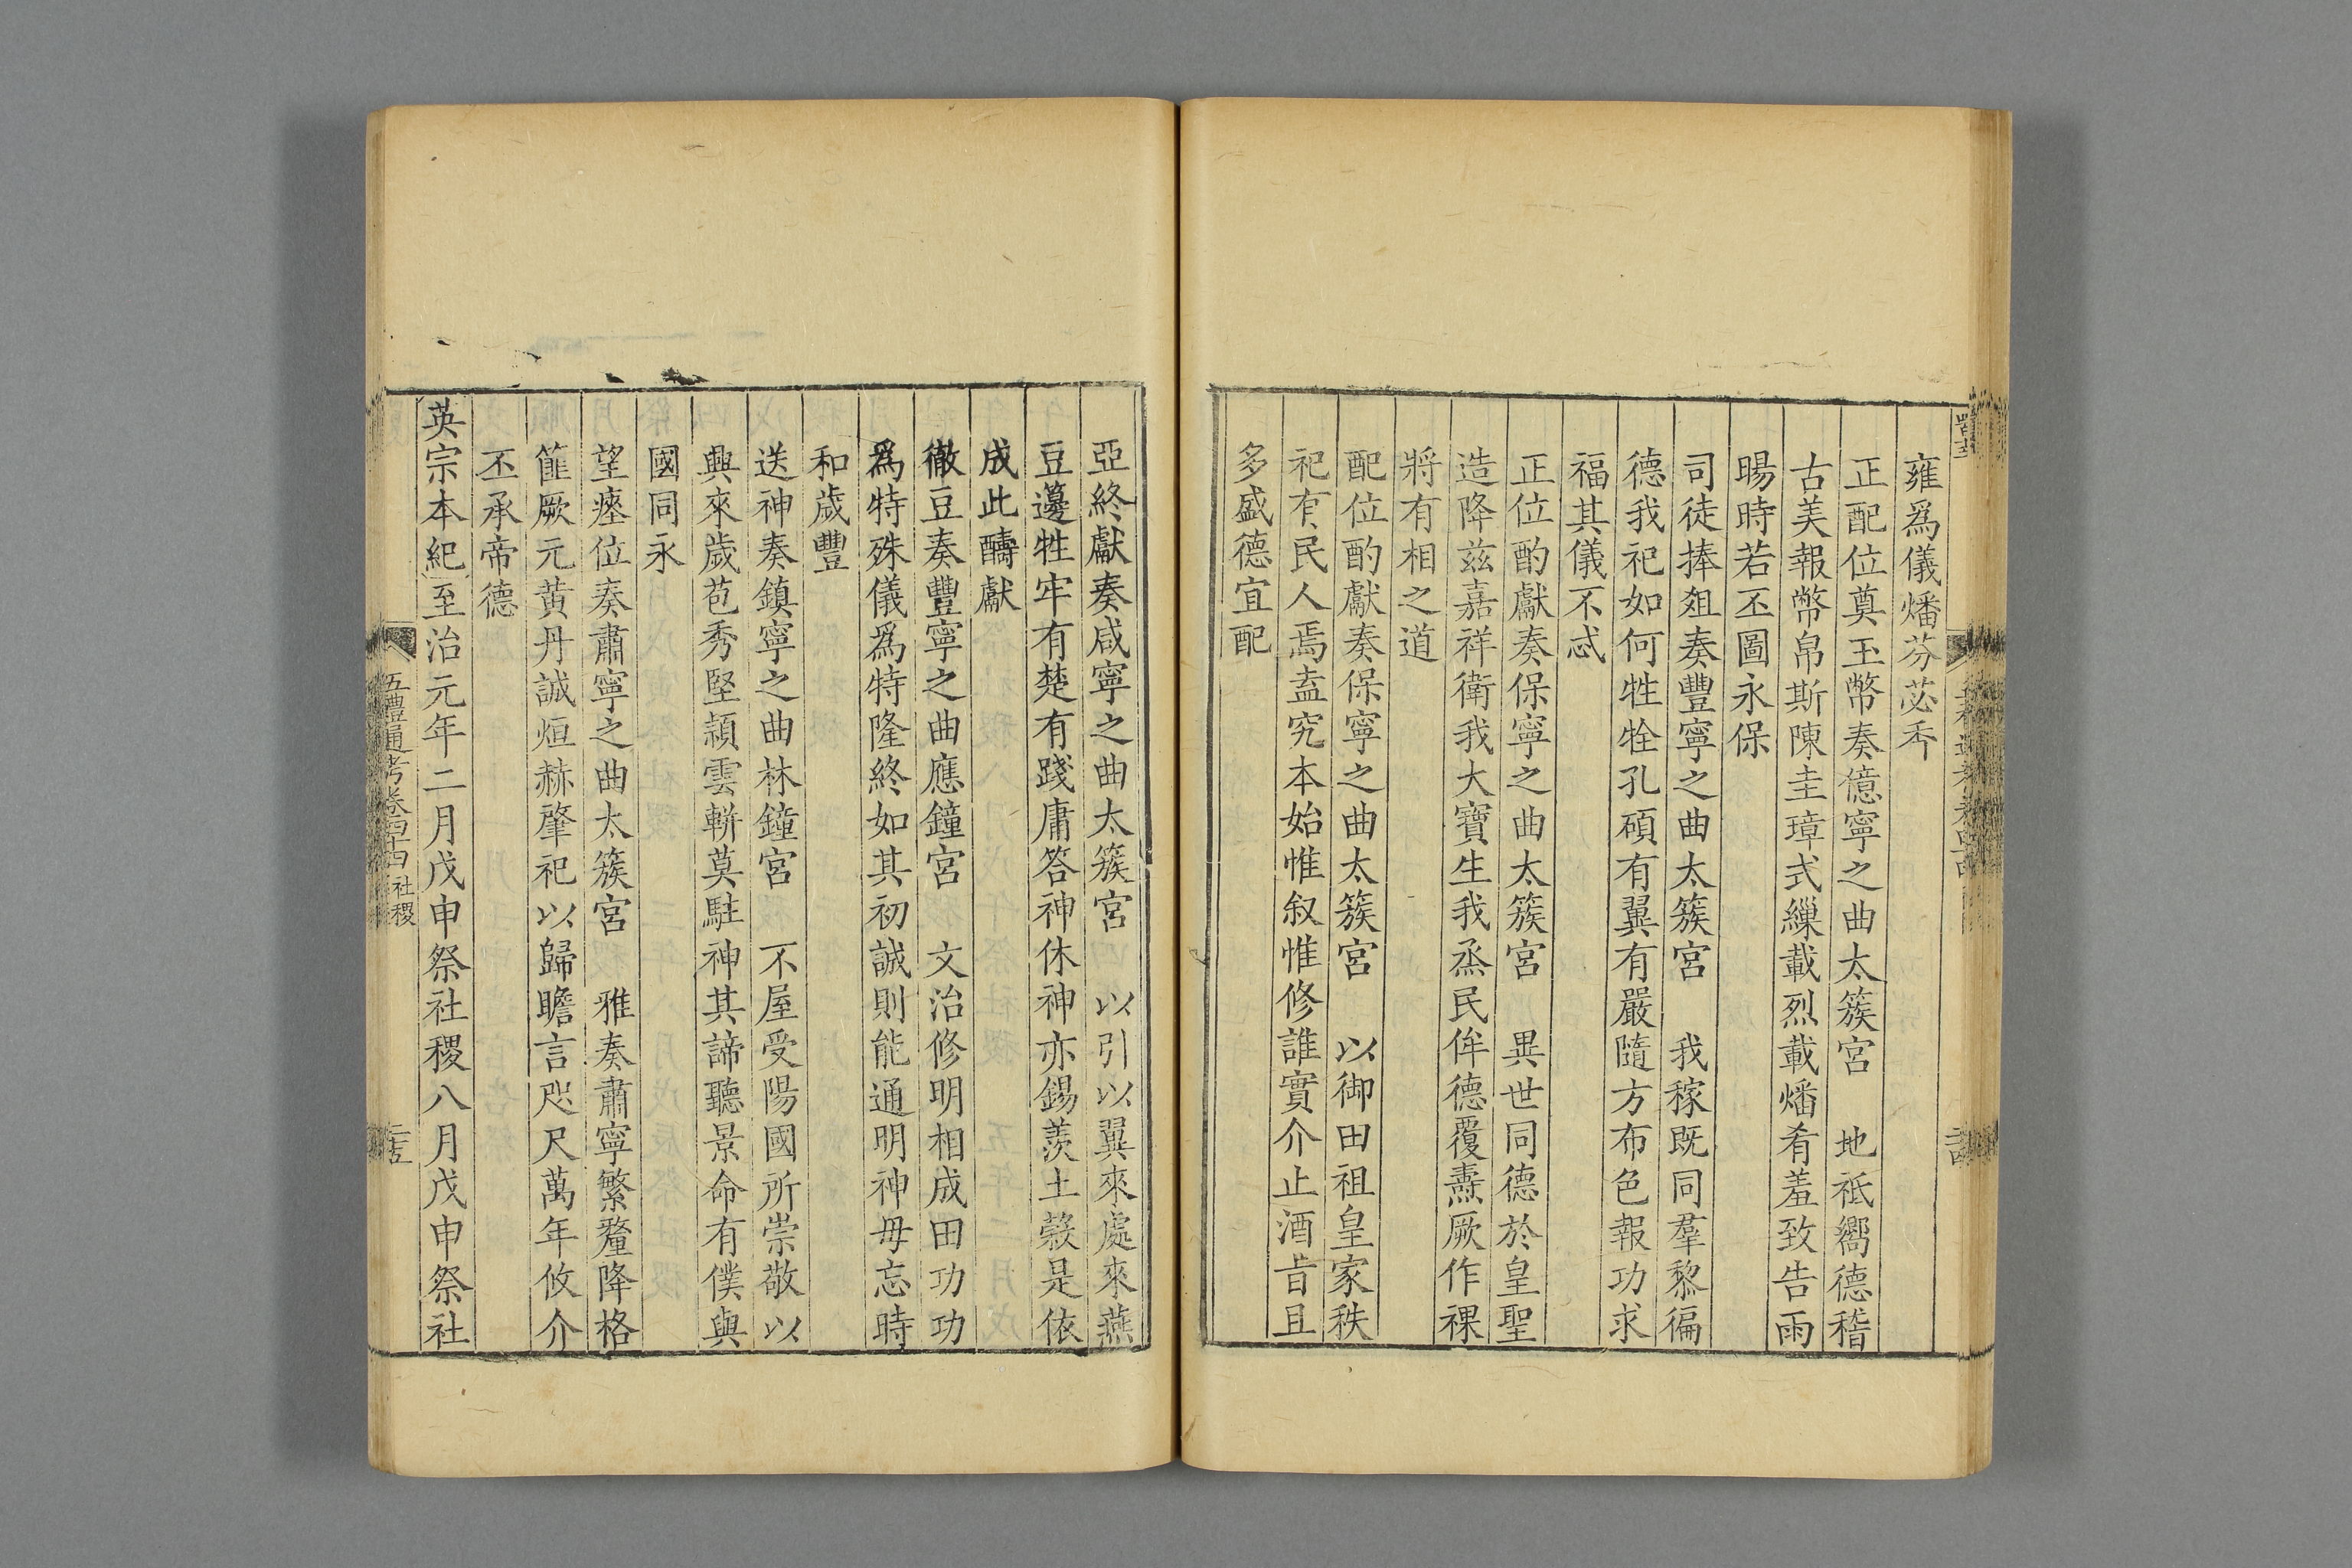 雍爲儀燔芬苾香
正配位奠玉幣奏億寧之曲太簇宮　地祗嚮德稽
古美報幣帛斯陳圭璋式繅載烈載燔肴羞致告雨
暘時若丕圖永保
司徒捧俎奏豐寧之曲太簇宮　我稼既同羣黎徧
德我祀如何牲牷孔碩有翼有嚴隨方布色報功求
福其儀不忒
正位酌獻奏保寧之曲太簇宮　異世同德於皇聖
造降茲嘉祥衛我大寶生我烝民侔德覆燾厥作祼
將有相之道
配位酌獻奏保寧之曲太簇宮　以御田祖皇家秩
祀有民人焉盍究本始惟叙惟修誰實介止酒旨且
多盛德宜配
亞終獻奏咸寧之曲太簇宮　以引以翼來處來燕
豆籩牲牢有楚有踐庸答神休神亦錫羨土穀是依
成此醻獻
徹豆奏豐寧之曲應鐘宮　文治修明相成田功功
爲特殊儀爲特隆終如其初誠則能通明神毋忘時
和歲豐
送神奏鎮寧之曲林鐘宮　不屋受陽國所崇敬以
興來歲苞秀堅穎雲軿莫駐神其諦聽景命有僕與
國同永
望瘞位奏肅寧之曲太簇宮　雅奏肅寧繁釐降格
篚厥元黃丹誠烜赫肇祀以歸瞻言咫尺萬年攸介
丕承帝德
英宗本紀至治元年二月戊申祭社稷八月戊申祭社
五禮通考卷四十四　社稷
二十五